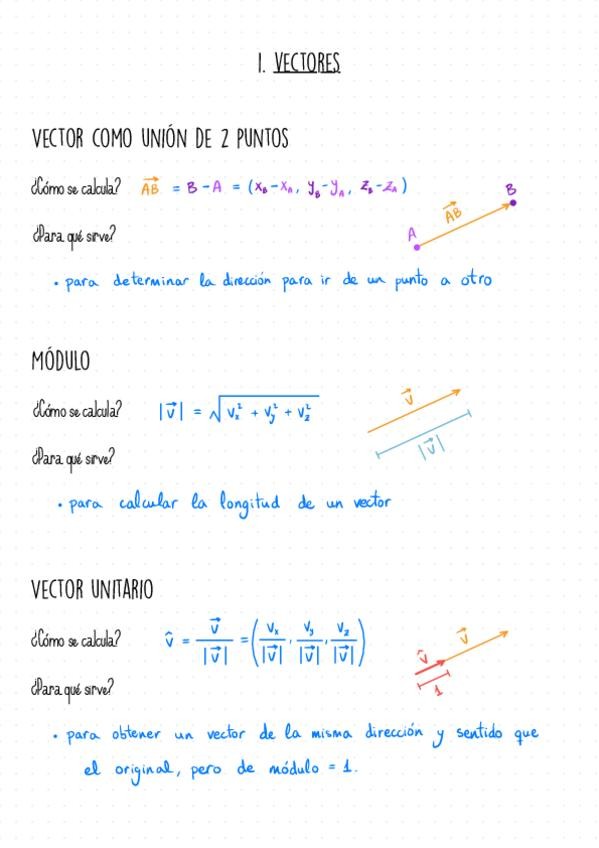 1. VECTORES
VECTOR COMO UNIÓN DE 2 PUNTOS
¿Cómo se calcula? AB⃗ = B - A = (x_B - x_A, y_B - y_A, z_B - z_A)
B
AB⃗
A
¿Para qué sirve?
• para determinar la dirección para ir de un punto a otro
MÓDULO
¿Cómo se calcula? |v⃗| = √(v_x² + v_y² + v_z²)
v⃗
|v⃗|
¿Para qué sirve?
• para calcular la longitud de un vector
VECTOR UNITARIO
¿Cómo se calcula? v̂ = v⃗/|v⃗| = (v_x/|v⃗|, v_y/|v⃗|, v_z/|v⃗|)
v̂ v⃗
1
¿Para qué sirve?
• para obtener un vector de la misma dirección y sentido que
el original, pero de módulo = 1.